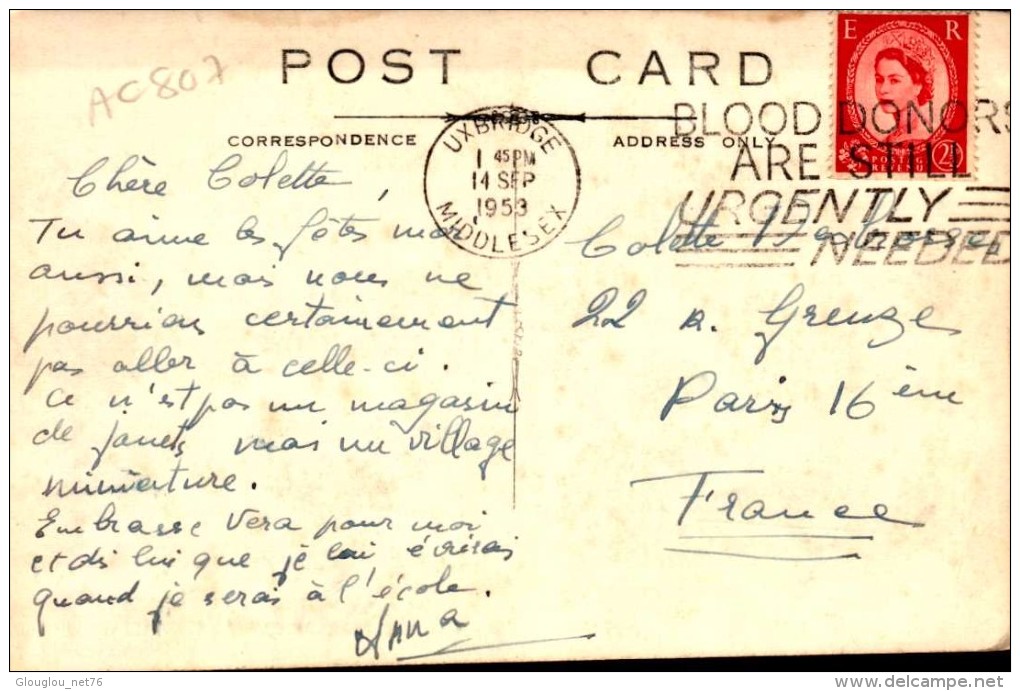 AC807
POST CARD
CORRESPONDENCE
ADDRESS ONLY
E R
POSTAGE REVENUE
UXBRIDGE
1 45 PM
14 SEP
1953
MIDDLESEX
BLOOD DONORS
ARE STILL
URGENTLY
NEEDED
Chère Colette,
Tu aime les fêtes moi
aussi, mais nous ne
pourrions certainement
pas aller à celle-ci.
Ce n'est pas un magasin
de jouets, mais un village
miniature.
Embrasse Vera pour moi
et dis lui que je lui écrirai
quand je serai à l'école.
Colette
22 r. Greuze
Paris 16 ème
France
Glouglou_net76
delcampe.net